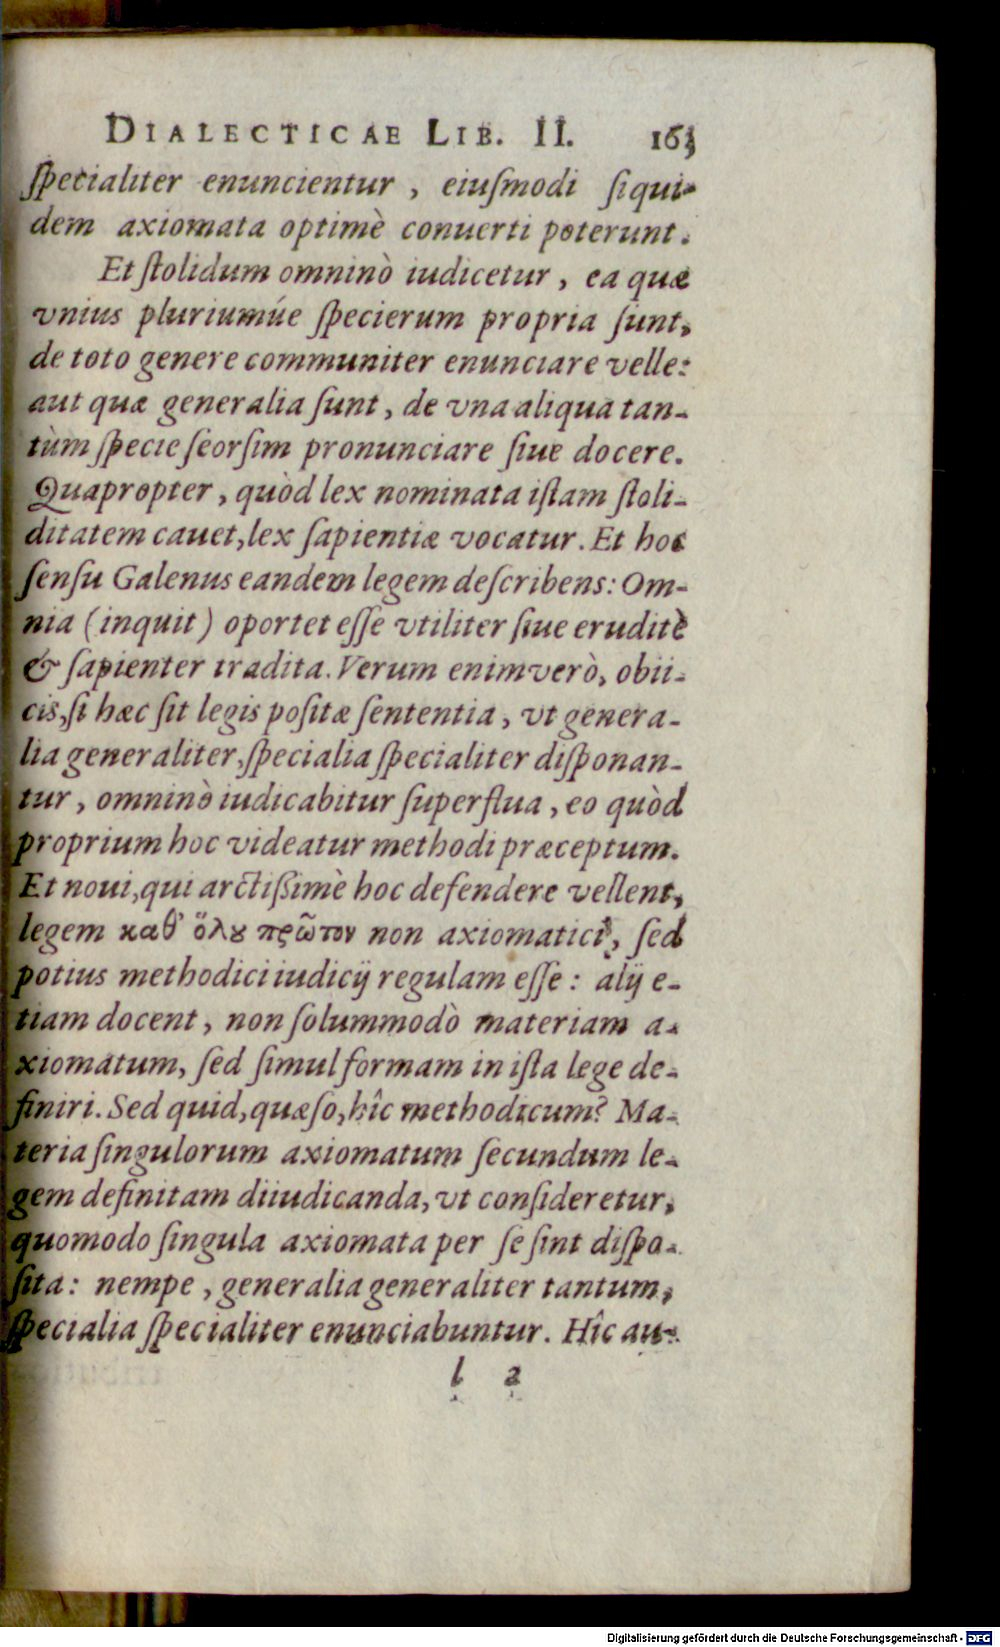 DIALECTICAE LIB. II. 163
ſpecialiter enuncientur, eiuſmodi ſiqui-
dem axiomata optimè conuerti poterunt.
Et ſtolidum omninò iudicetur, ea quæ
vnius pluriumúe ſpecierum propria ſunt,
de toto genere communiter enunciare velle:
aut quæ generalia ſunt, de vna aliqua tan-
tùm ſpecie ſeorſim pronunciare ſiue docere.
Quapropter, quòd lex nominata iſtam ſtoli-
ditatem cauet, lex ſapientiæ vocatur. Et hoc
ſenſu Galenus eandem legem deſcribens: Om-
nia (inquit) oportet eſſe vtiliter ſiue eruditè
& ſapienter tradita. Verum enimverò, obii-
cis, ſi hæc ſit legis poſitæ ſententia, vt genera-
lia generaliter, ſpecialia ſpecialiter diſponan-
tur, omninò iudicabitur ſuperflua, eo quòd
proprium hoc videatur methodi præceptum.
Et noui, qui arctißimè hoc defendere vellent,
legem καθ’ ὅλȣ πρῶτον non axiomatici, ſed
potius methodici iudicij regulam eſſe: alij e-
tiam docent, non ſolummodò materiam a-
xiomatum, ſed ſimul formam in iſta lege de-
finiri. Sed quid, quæſo, hîc methodicum? Ma-
teria ſingulorum axiomatum ſecundum le-
gem definitam diiudicanda, vt conſideretur,
quomodo ſingula axiomata per ſe ſint diſpo-
ſita: nempe, generalia generaliter tantum,
ſpecialia ſpecialiter enunciabuntur. Hîc au-
l 2
Digitalisierung gefördert durch die Deutsche Forschungsgemeinschaft - DFG